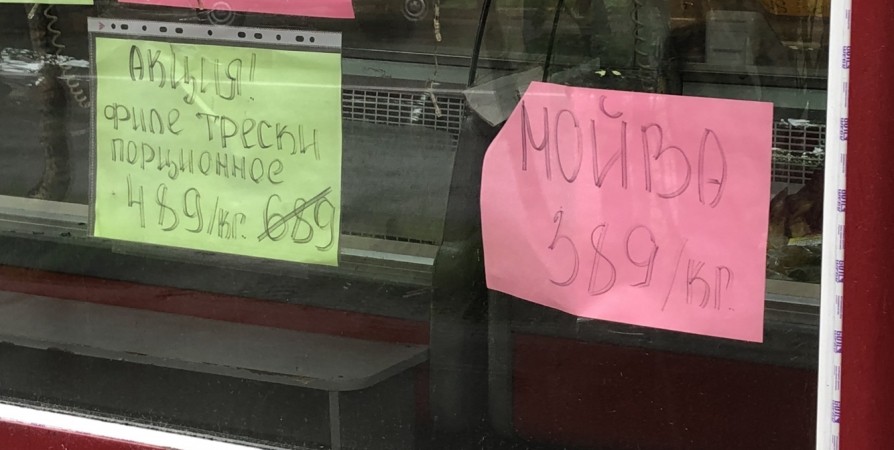 АКЦИЯ!
ФИЛЕ ТРЕСКИ
ПОРЦИОННОЕ
489/КГ. 689
МОЙВА
389/КГ.